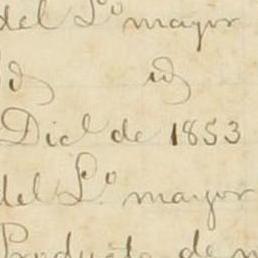 del L.º mayor
id id
Dic.l de 1853
del L.º mayor
Producto de